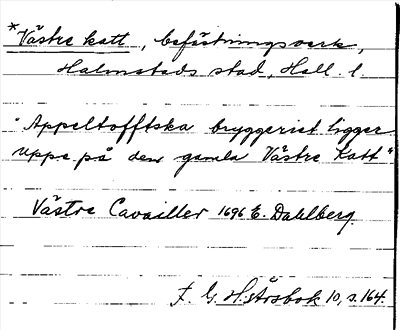 *Västre katt, befästningsverk,
Halmstads stad, Hall. l.
"Appeltofftska bryggeriet ligger
uppe på den gamla Västre Katt"
Västre Cavailler 1696 E. Dahlberg.
F. G. H. årsbok 10, s. 164.